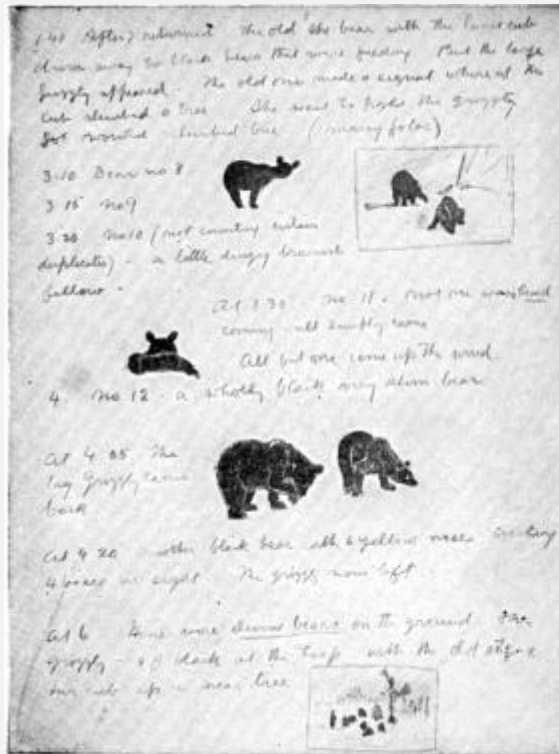 1.40 After 7 returned the old she bear with the lame cub
drove away two black bears that were feeding But the large
Grizzly appeared. The old one made a signal whereat the
cub climbed a tree She went to fight the grizzly
got worsted climbed tree (many fotos)
3.10 Bear no 8
3.15 no 9
3.20 No 10 (not counting certain
duplicates) - a little dingy brownish
fellow -
At 3.30 no 11 - not one was heard
coming - all simply came
All but one came up the wind
4. no 12 - a wholly black very slim bear
At 4.05 The
big Grizzly came
back
At 4.20 another black bear with a yellow nose
4 bears in sight The grizzly now left
At 6 there were bears on the ground
grizzly - black at the with the old
one cub up a near tree